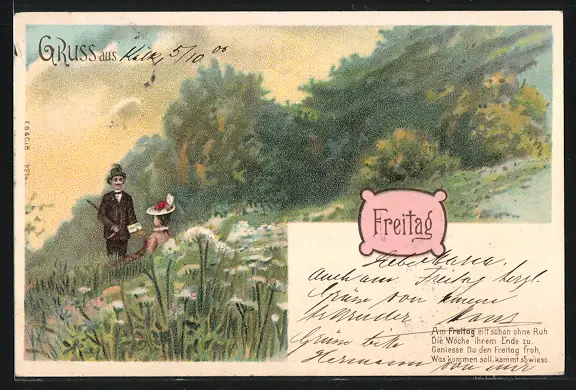 GRUSS aus Köln, 5/10 00
Freitag
Liebe Maria.
Auch am Freitag herzl.
Grüsse von Deinem
Bruder Hans
Grüsse bitte
Hermann von mir
Am Freitag eilt schon ohne Ruh
Die Woche ihrem Ende zu.
Geniesse Du den Freitag froh,
Was kommen soll, kommt sowieso.